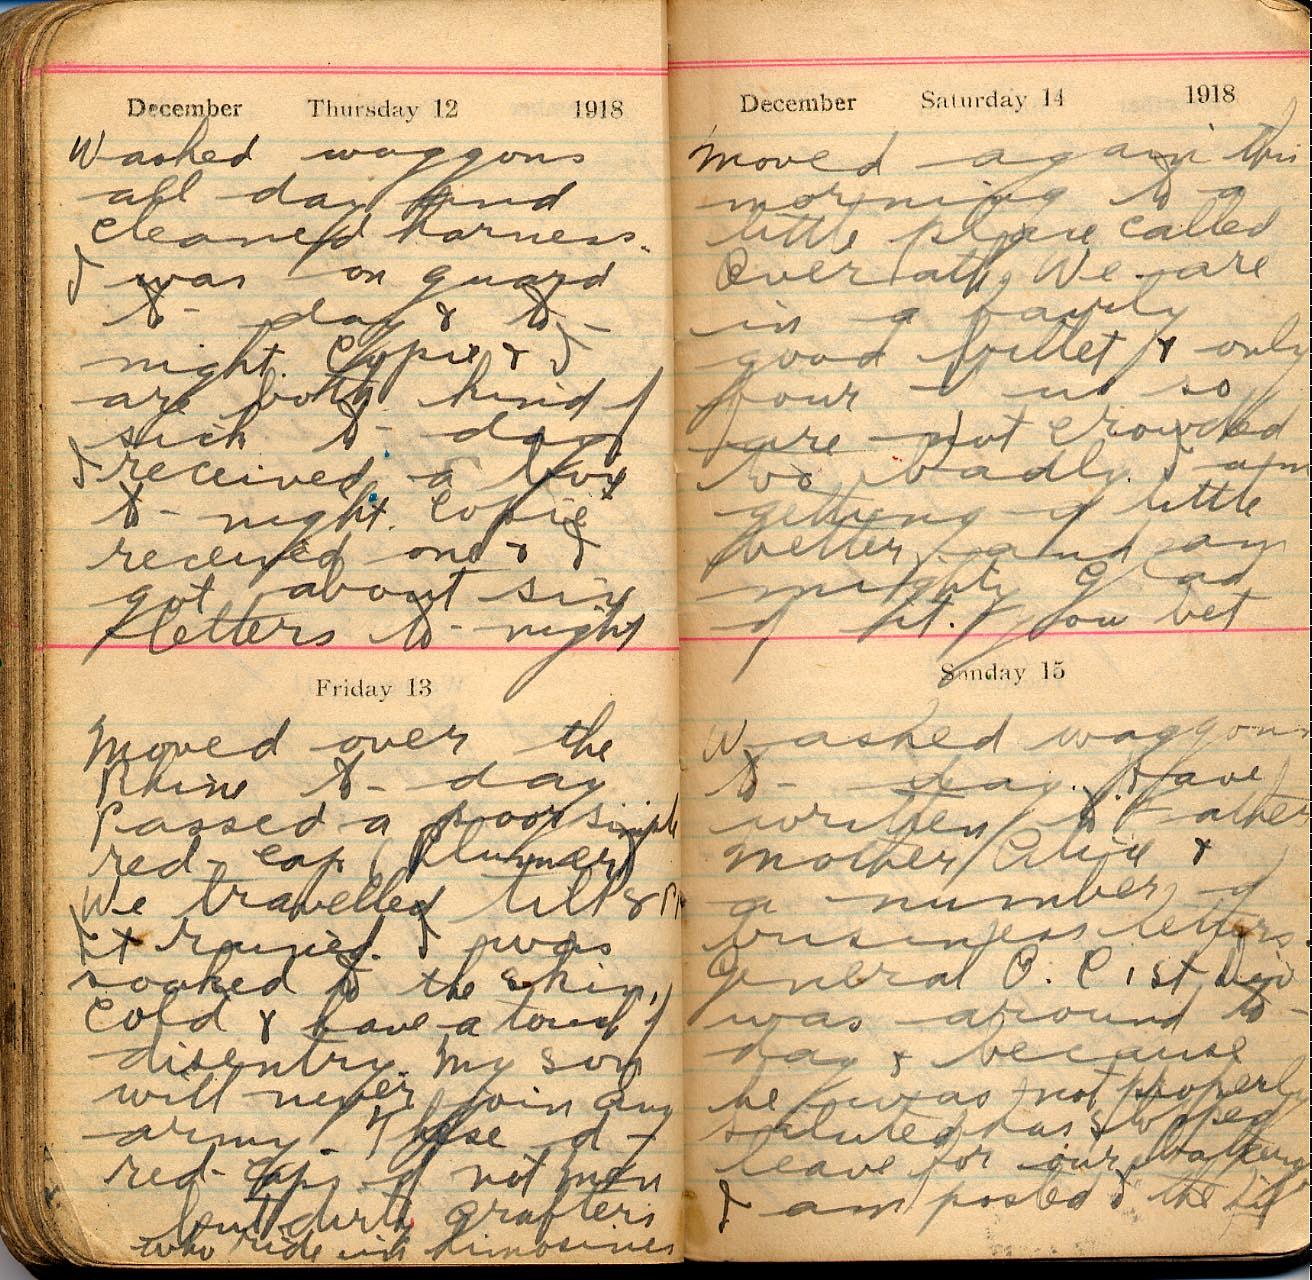 December Thursday 12 1918
Washed waggons
all day and
cleaned harness.
I was on guard
to-day & to-
night. Coppie & I
are both kind of
sick to-day
I received a box
to-night. Coppie
received one & I
got about six
letters to-night
Friday 13
Moved over the
Rhine to-day
Passed a poor simple
red-cap (Plummer)
We travelled till 8 P.
It rained. I was
soaked to the skin,
Cold & have a touch of
disentry. My son
will never join any
army. These d-
red-caps of not men
but dirty grafters
who ride in limosines
December Saturday 14 1918
Moved again this
morning to a
little place called
Overath. We are
in a fairly
good billet & only
four of us so
are not crowded
too badly. I am
getting a little
better and am
mighty glad
of it. You bet
Sunday 15
Washed waggons
to-day. Have
written to Father
Mother, Alice &
a number of
business letters
General O. C 1st Div
was around to-
day & because
he was not properly
saluted has stopped
leave for our battery
I am posted to the